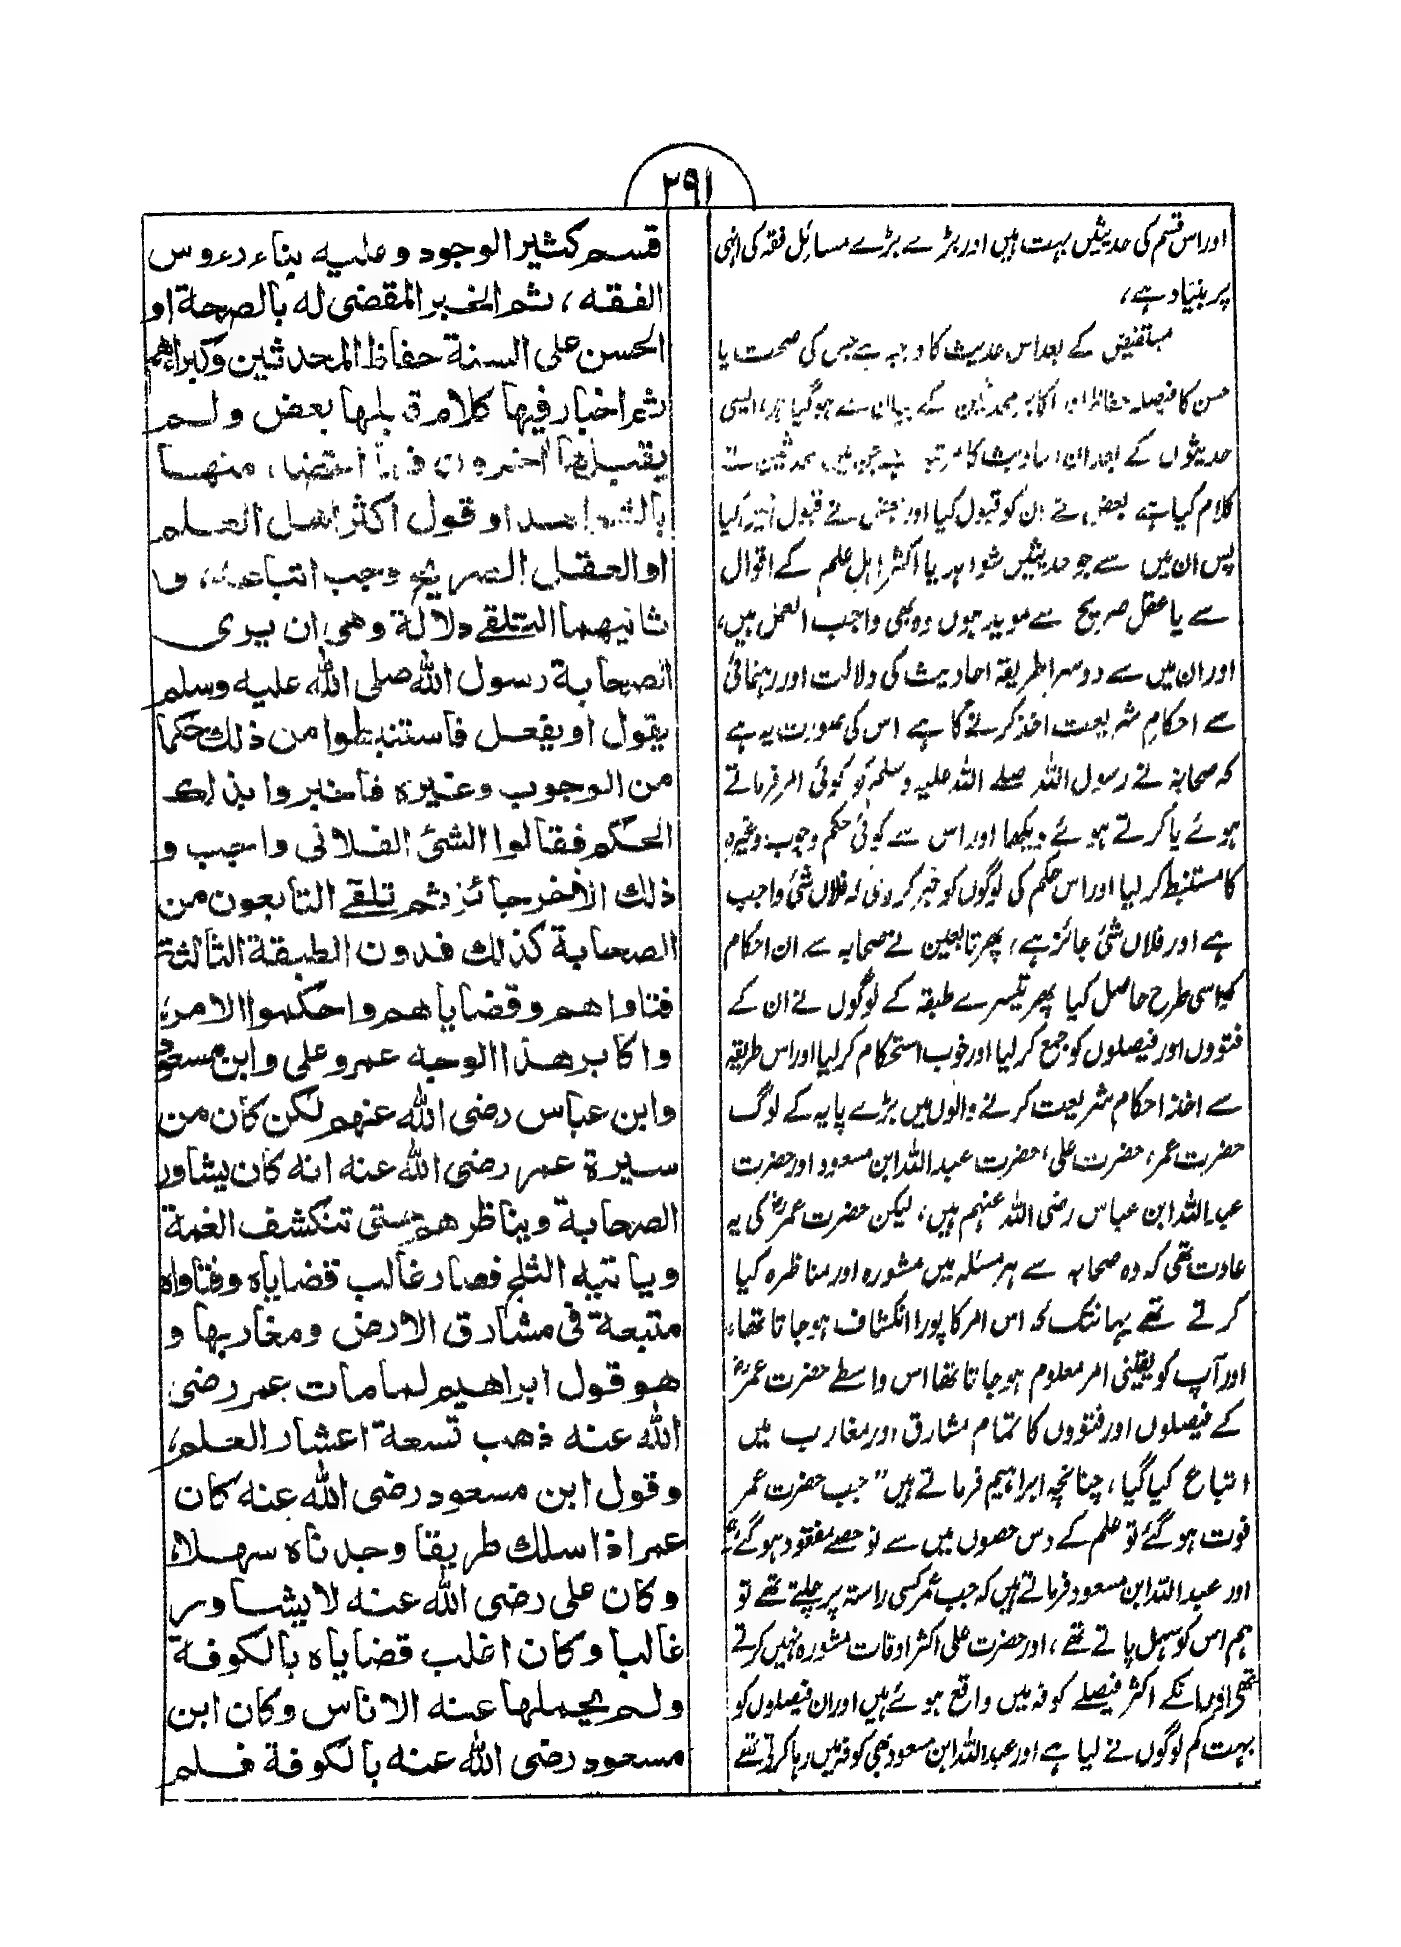 ۲۹۱
اور اس قسم کی حدیثیں بہت ہیں اور بڑے بڑے مسائل فقہ کی انہی
پر بنیاد ہے،
مستفیض کے بعد اس حدیث کا درجہ ہے جس کی صحت یا
حسن کا فیصلہ حفاظ اور اکابر محدثین کے یہاں سے ہو گیا ہو، ایسی
حدیثوں کے بعد ان احادیث کا مرتبہ ہے جن میں محدثین سے
کلام کیا ہے بعض نے ان کو قبول کیا اور بعض نے قبول نہیں کیا
پس ان میں سے جو حدیثیں شواہد یا اکثر اہل علم کے اقوال
سے یا عقل صریح سے موید ہوں وہ بھی واجب العمل ہیں،
اور ان میں سے دوسرا طریقہ احادیث کی دلالت اور رہنمائی
سے احکام شریعت اخذ کرنے کا ہے اس کی صورت یہ ہے
کہ صحابہ نے رسول اللہ صلے اللہ علیہ وسلم کو کوئی امر فرماتے
ہوئے یا کرتے ہوئے دیکھا اور اس سے کوئی حکم وجوب وغیرہ
کا مستنبط کر لیا اور اس حکم کی لوگوں کو خبر کر دی کہ فلاں شئ واجب
ہے اور فلاں شئ جائز ہے، پھر تابعین نے صحابہ سے ان احکام
کو اسی طرح حاصل کیا پھر تیسرے طبقہ کے لوگوں نے ان کے
فتووں اور فیصلوں کو جمع کر لیا اور خوب استحکام کر لیا اور اس طریقہ
سے اخذ احکام شریعت کرنے والوں میں بڑے پایہ کے لوگ
حضرت عمر، حضرت علی، حضرت عبداللہ ابن مسعود اور حضرت
عبداللہ ابن عباس رضی اللہ عنہم ہیں، لیکن حضرت عمرؓ کی یہ
عادت تھی کہ وہ صحابہ سے ہر مسئلہ میں مشورہ اور مناظرہ کیا
کرتے تھے یہانتک کہ اس امر کا پورا انکشاف ہو جاتا تھا،
اور آپ کو یقینی امر معلوم ہو جاتا تھا اس واسطے حضرت عمرؓ
کے فیصلوں اور فتووں کا تمام مشارق اور مغارب میں
اتباع کیا گیا، چنانچہ ابراہیم فرماتے ہیں "جب حضرت عمر
فوت ہو گئے تو علم کے دس حصوں میں سے نو حصے مفقود ہو گئے،
اور عبداللہ ابن مسعود فرماتے ہیں کہ جب عمر کسی راستہ پر چلتے تھے تو
ہم اس کو سہل پاتے تھے، اور حضرت علی اکثر اوقات مشورہ نہیں کرتے
تھے اور انکے اکثر فیصلے کوفہ میں واقع ہوئے ہیں اور ان فیصلوں کو
بہت کم لوگوں نے لیا ہے اور عبداللہ ابن مسعود بھی کوفہ میں رہا کرتے تھے
قسم كثير الوجود وعليه بناء رءوس
الفقه، ثم الخبر المقضى له بالصحة او
الحسن على السنة حفاظ المحدثين وكبراءهم
ثم اخبار فيها كلام قبلها بعض ولم
يقبلها اخرون فما اعتضد منها
بالشواهد او قول اكثر اهل العلم
او العقل الصريح وجب اتباعه، و
ثانيهما التلقے دلالة وهى ان يرى
الصحابة رسول الله صلى الله عليه وسلم
يقول او يفعل فاستنبطوا من ذلك حكما
من الوجوب وغيره فاخبروا بذلك
الحكم فقالوا الشئ الفلانى واجب و
ذلك الآخر جائز ثم تلقے التابعون من
الصحابة كذلك فدون الطبقة الثالثة
فتاواهم وقضاياهم واحكموا الامر،
واكابر هذا الوجه عمر وعلى وابن مسعود
وابن عباس رضى الله عنهم لكن كان من
سيرة عمر رضى الله عنه انه كان يشاور
الصحابة ويناظرهم حتى تنكشف الغمة
وياتيه الثلج فصار غالب قضاياه وفتاواه
متبعة فى مشارق الارض ومغاربها و
هو قول ابراهيم لما مات عمر رضى
الله عنه ذهب تسعة اعشار العلم،
وقول ابن مسعود رضى الله عنه كان
عمر اذا سلك طريقا وجدناه سهلا،
وكان على رضى الله عنه لا يشاور
غالبا وكان اغلب قضاياه بالكوفة
ولم يحملها عنه الا ناس وكان ابن
مسعود رضى الله عنه بالكوفة فلم